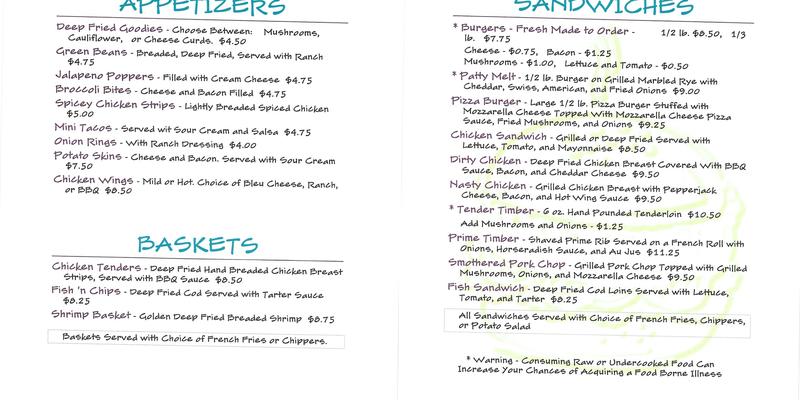 APPETIZERS
Deep Fried Goodies - Choose Between: Mushrooms,
Cauliflower, or Cheese Curds. $4.50
Green Beans - Breaded, Deep Fried, Served with Ranch
$4.75
Jalapeno Poppers - Filled with Cream Cheese $4.75
Broccoli Bites - Cheese and Bacon Filled $4.75
Spicey Chicken Strips - Lightly Breaded Spiced Chicken
$5.00
Mini Tacos - Served wit Sour Cream and Salsa $4.75
Onion Rings - With Ranch Dressing $4.00
Potato Skins - Cheese and Bacon. Served with Sour Cream
$7.50
Chicken Wings - Mild or Hot. Choice of Bleu Cheese, Ranch,
or BBQ $8.50
BASKETS
Chicken Tenders - Deep Fried Hand Breaded Chicken Breast
Strips, Served with BBQ Sauce $8.50
Fish 'n Chips - Deep Fried Cod Served with Tarter Sauce
$8.25
Shrimp Basket - Golden Deep Fried Breaded Shrimp $8.75
Baskets Served with Choice of French Fries or Chippers.
SANDWICHES
* Burgers - Fresh Made to Order - 1/2 lb. $8.50, 1/3
lb. $7.75
Cheese - $0.75, Bacon - $1.25
Mushrooms - $1.00, Lettuce and Tomato - $0.50
* Patty Melt - 1/2 lb. Burger on Grilled Marbled Rye with
Cheddar, Swiss, American, and Fried Onions $9.00
Pizza Burger - Large 1/2 lb. Pizza Burger Stuffed with
Mozzarella Cheese Topped With Mozzarella Cheese Pizza
Sauce, Fried Mushrooms, and Onions $9.25
Chicken Sandwich - Grilled or Deep Fried Served with
Lettuce, Tomato, and Mayonnaise $8.50
Dirty Chicken - Deep Fried Chicken Breast Covered With BBQ
Sauce, Bacon, and Cheddar Cheese $9.50
Nasty Chicken - Grilled Chicken Breast with Pepperjack
Cheese, Bacon, and Hot Wing Sauce $9.50
* Tender Timber - 6 oz. Hand Pounded Tenderloin $10.50
Add Mushrooms and Onions - $1.25
Prime Timber - Shaved Prime Rib Served on a French Roll with
Onions, Horseradish Sauce, and Au Jus $11.25
Smothered Pork Chop - Grilled Pork Chop Topped with Grilled
Mushrooms, Onions, and Mozzarella Cheese $9.50
Fish Sandwich - Deep Fried Cod Loins Served with Lettuce,
Tomato, and Tarter $8.25
All Sandwiches Served with Choice of French Fries, Chippers,
or Potato Salad
* Warning - Consuming Raw or Undercooked Food Can
Increase Your Chances of Acquiring a Food Borne Illness